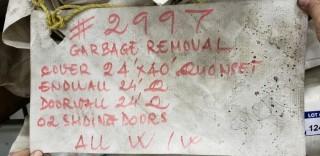 # 2997
GARBAGE REMOVAL
COVER 24'X40' QUONSET
ENDWALL 24' Q
DOORWALL 24' Q
02 SLIDING DOORS
ALL W/W
LOT
124